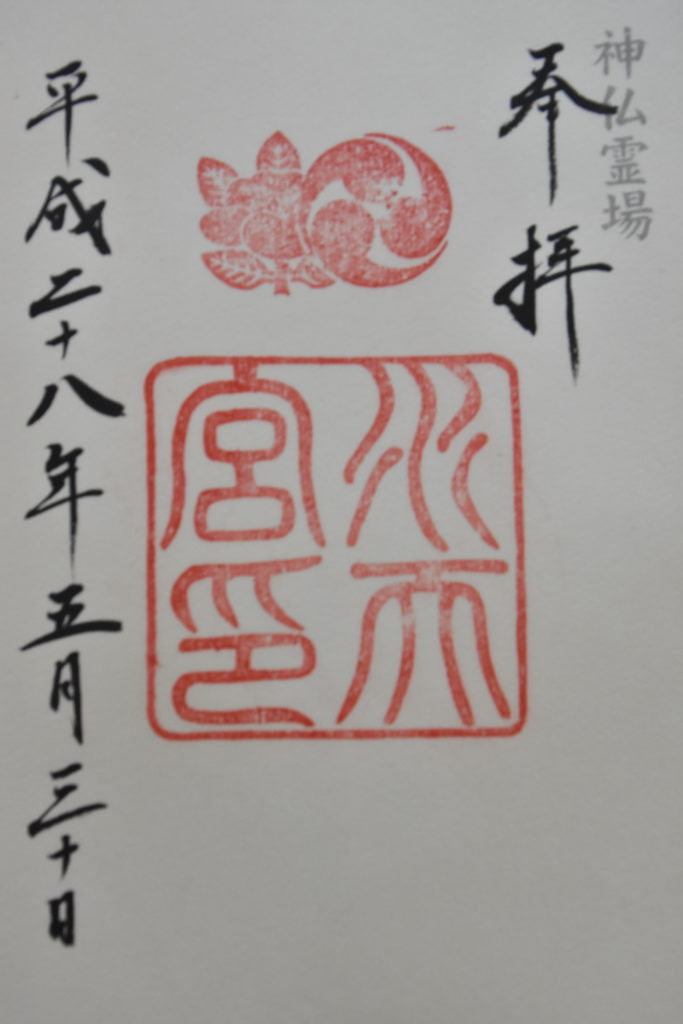 神仏霊場
奉拝
水天
宮印
平成二十八年五月三十日